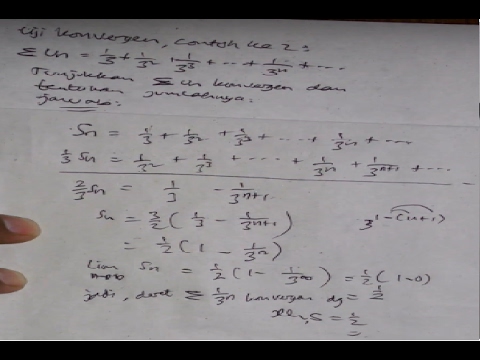 Uji konvergen, contoh ke 2:
Σ Un = 1/3 + 1/3² + 1/3³ + ... + 1/3ⁿ + ...
Tunjukkan Σ Un konvergen dan
tentukan jumlahnya.
jawab:
Sn = 1/3 + 1/3² + 1/3³ + ... + 1/3ⁿ + ...
1/3 Sn = 1/3² + 1/3³ + ... + 1/3ⁿ + 1/3ⁿ⁺¹ + ...
2/3 Sn = 1/3 - 1/3ⁿ⁺¹
Sn = 3/2 ( 1/3 - 1/3ⁿ⁺¹ ) 3^(1-(n+1))
= 1/2 ( 1 - 1/3ⁿ )
Lim n→∞ Sn = 1/2 ( 1 - 1/3^∞ ) = 1/2 ( 1-0 )
jadi, deret Σ 1/3ⁿ konvergen dg = 1/2
S = 1/2